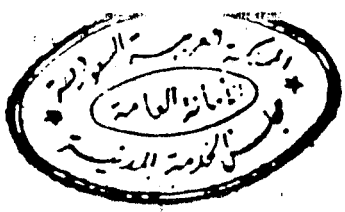 المملكة العربية السعودية
الأمانة العامة
مجلس الخدمة المدنية